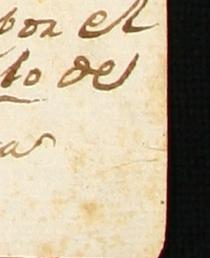 por el
to del
as